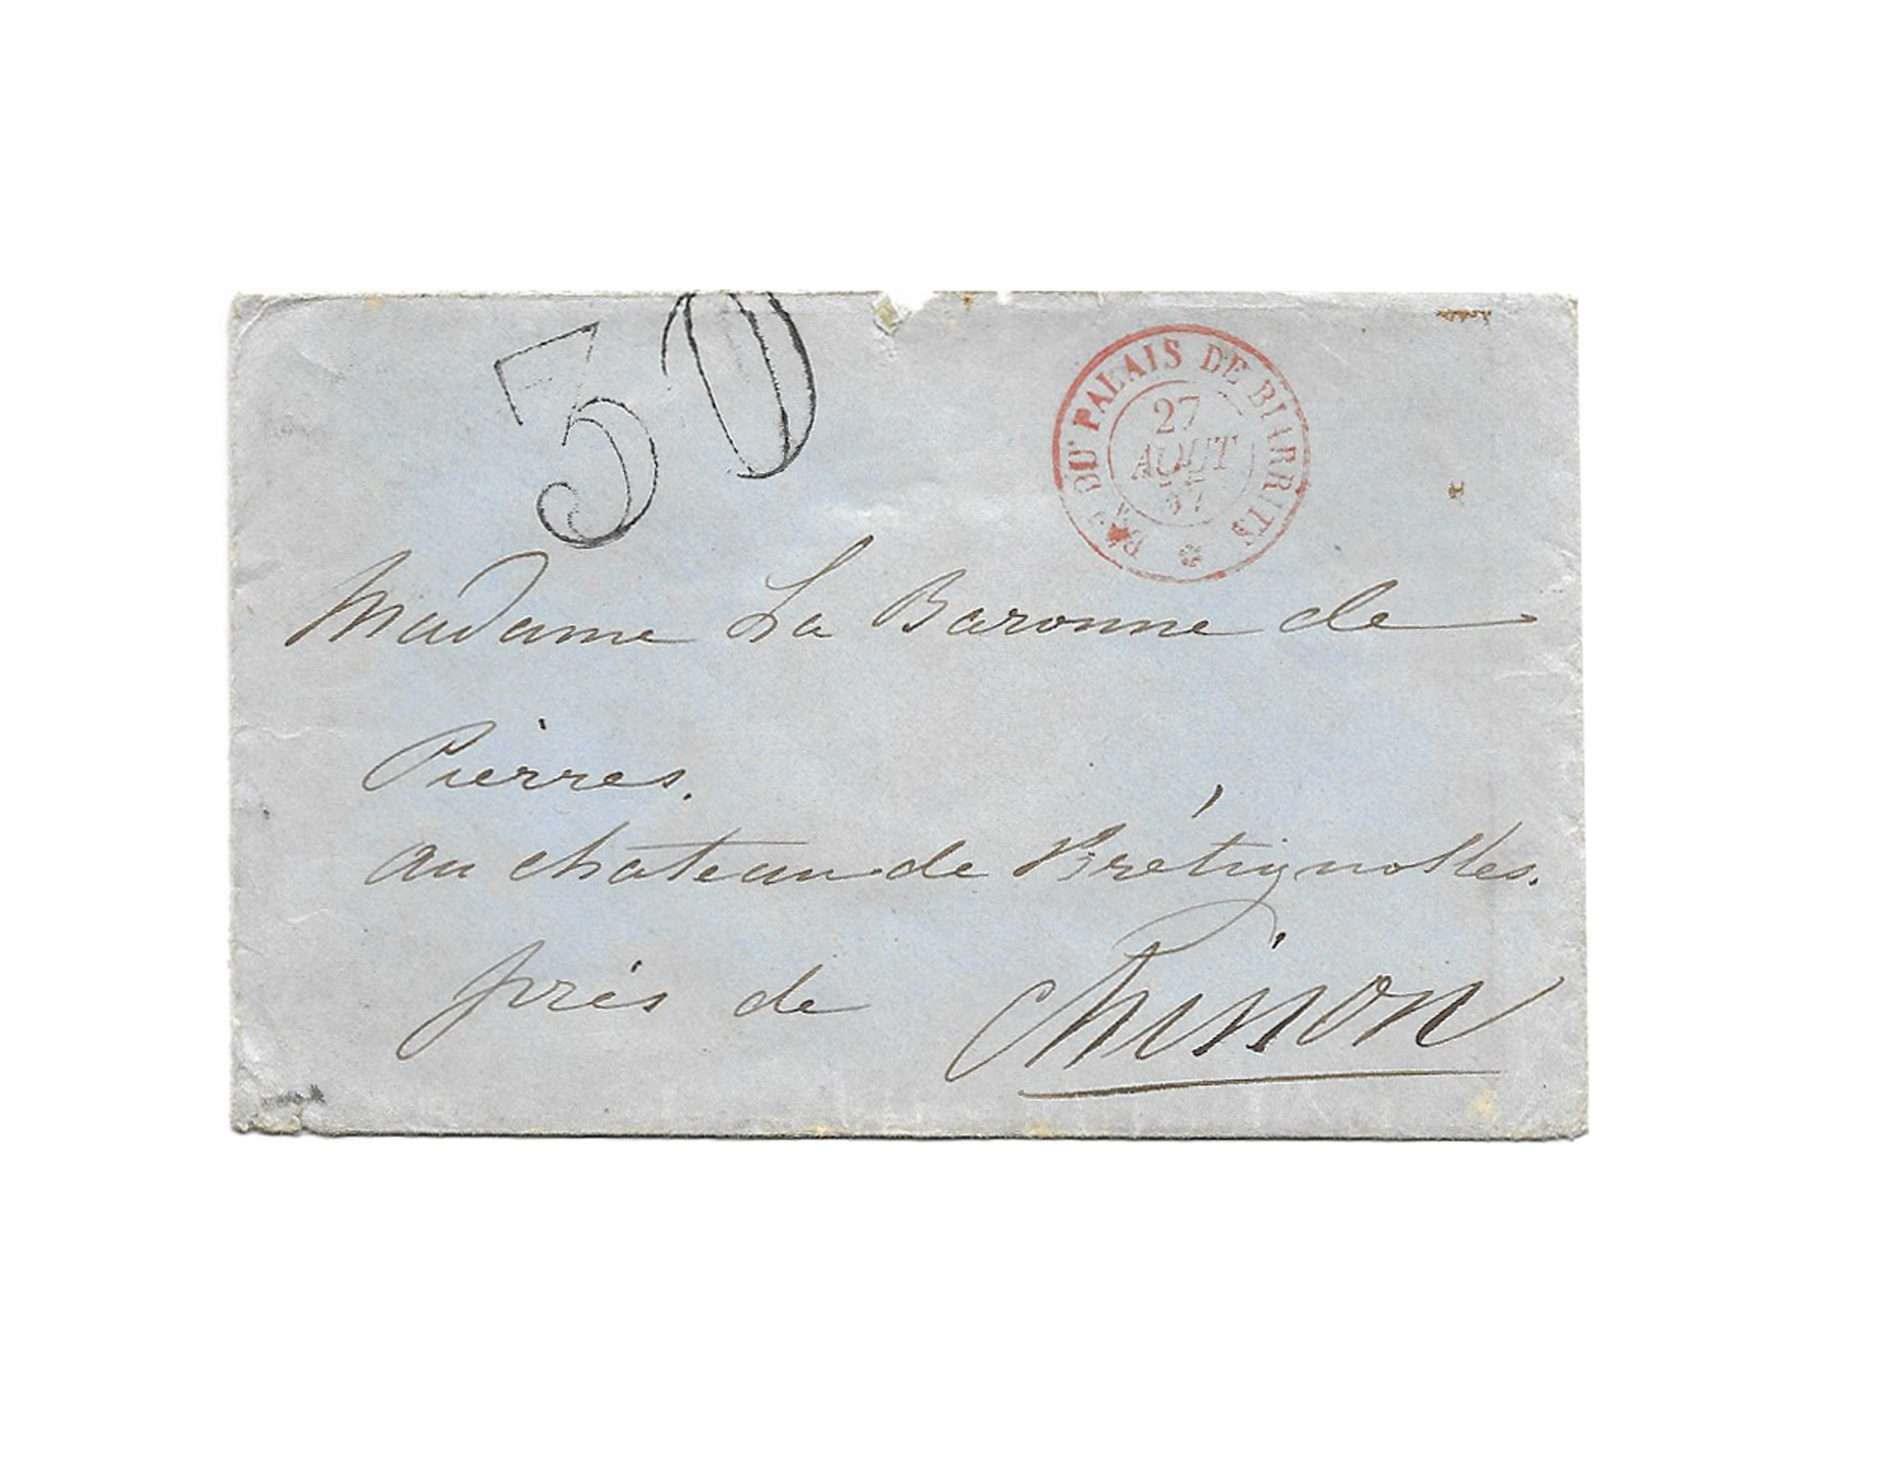 30
DU PALAIS DE BIARRITS
27
AOUT
57
Madame La Baronne de
Pierres.
au chateau de Brétignolles.
près de Chinon